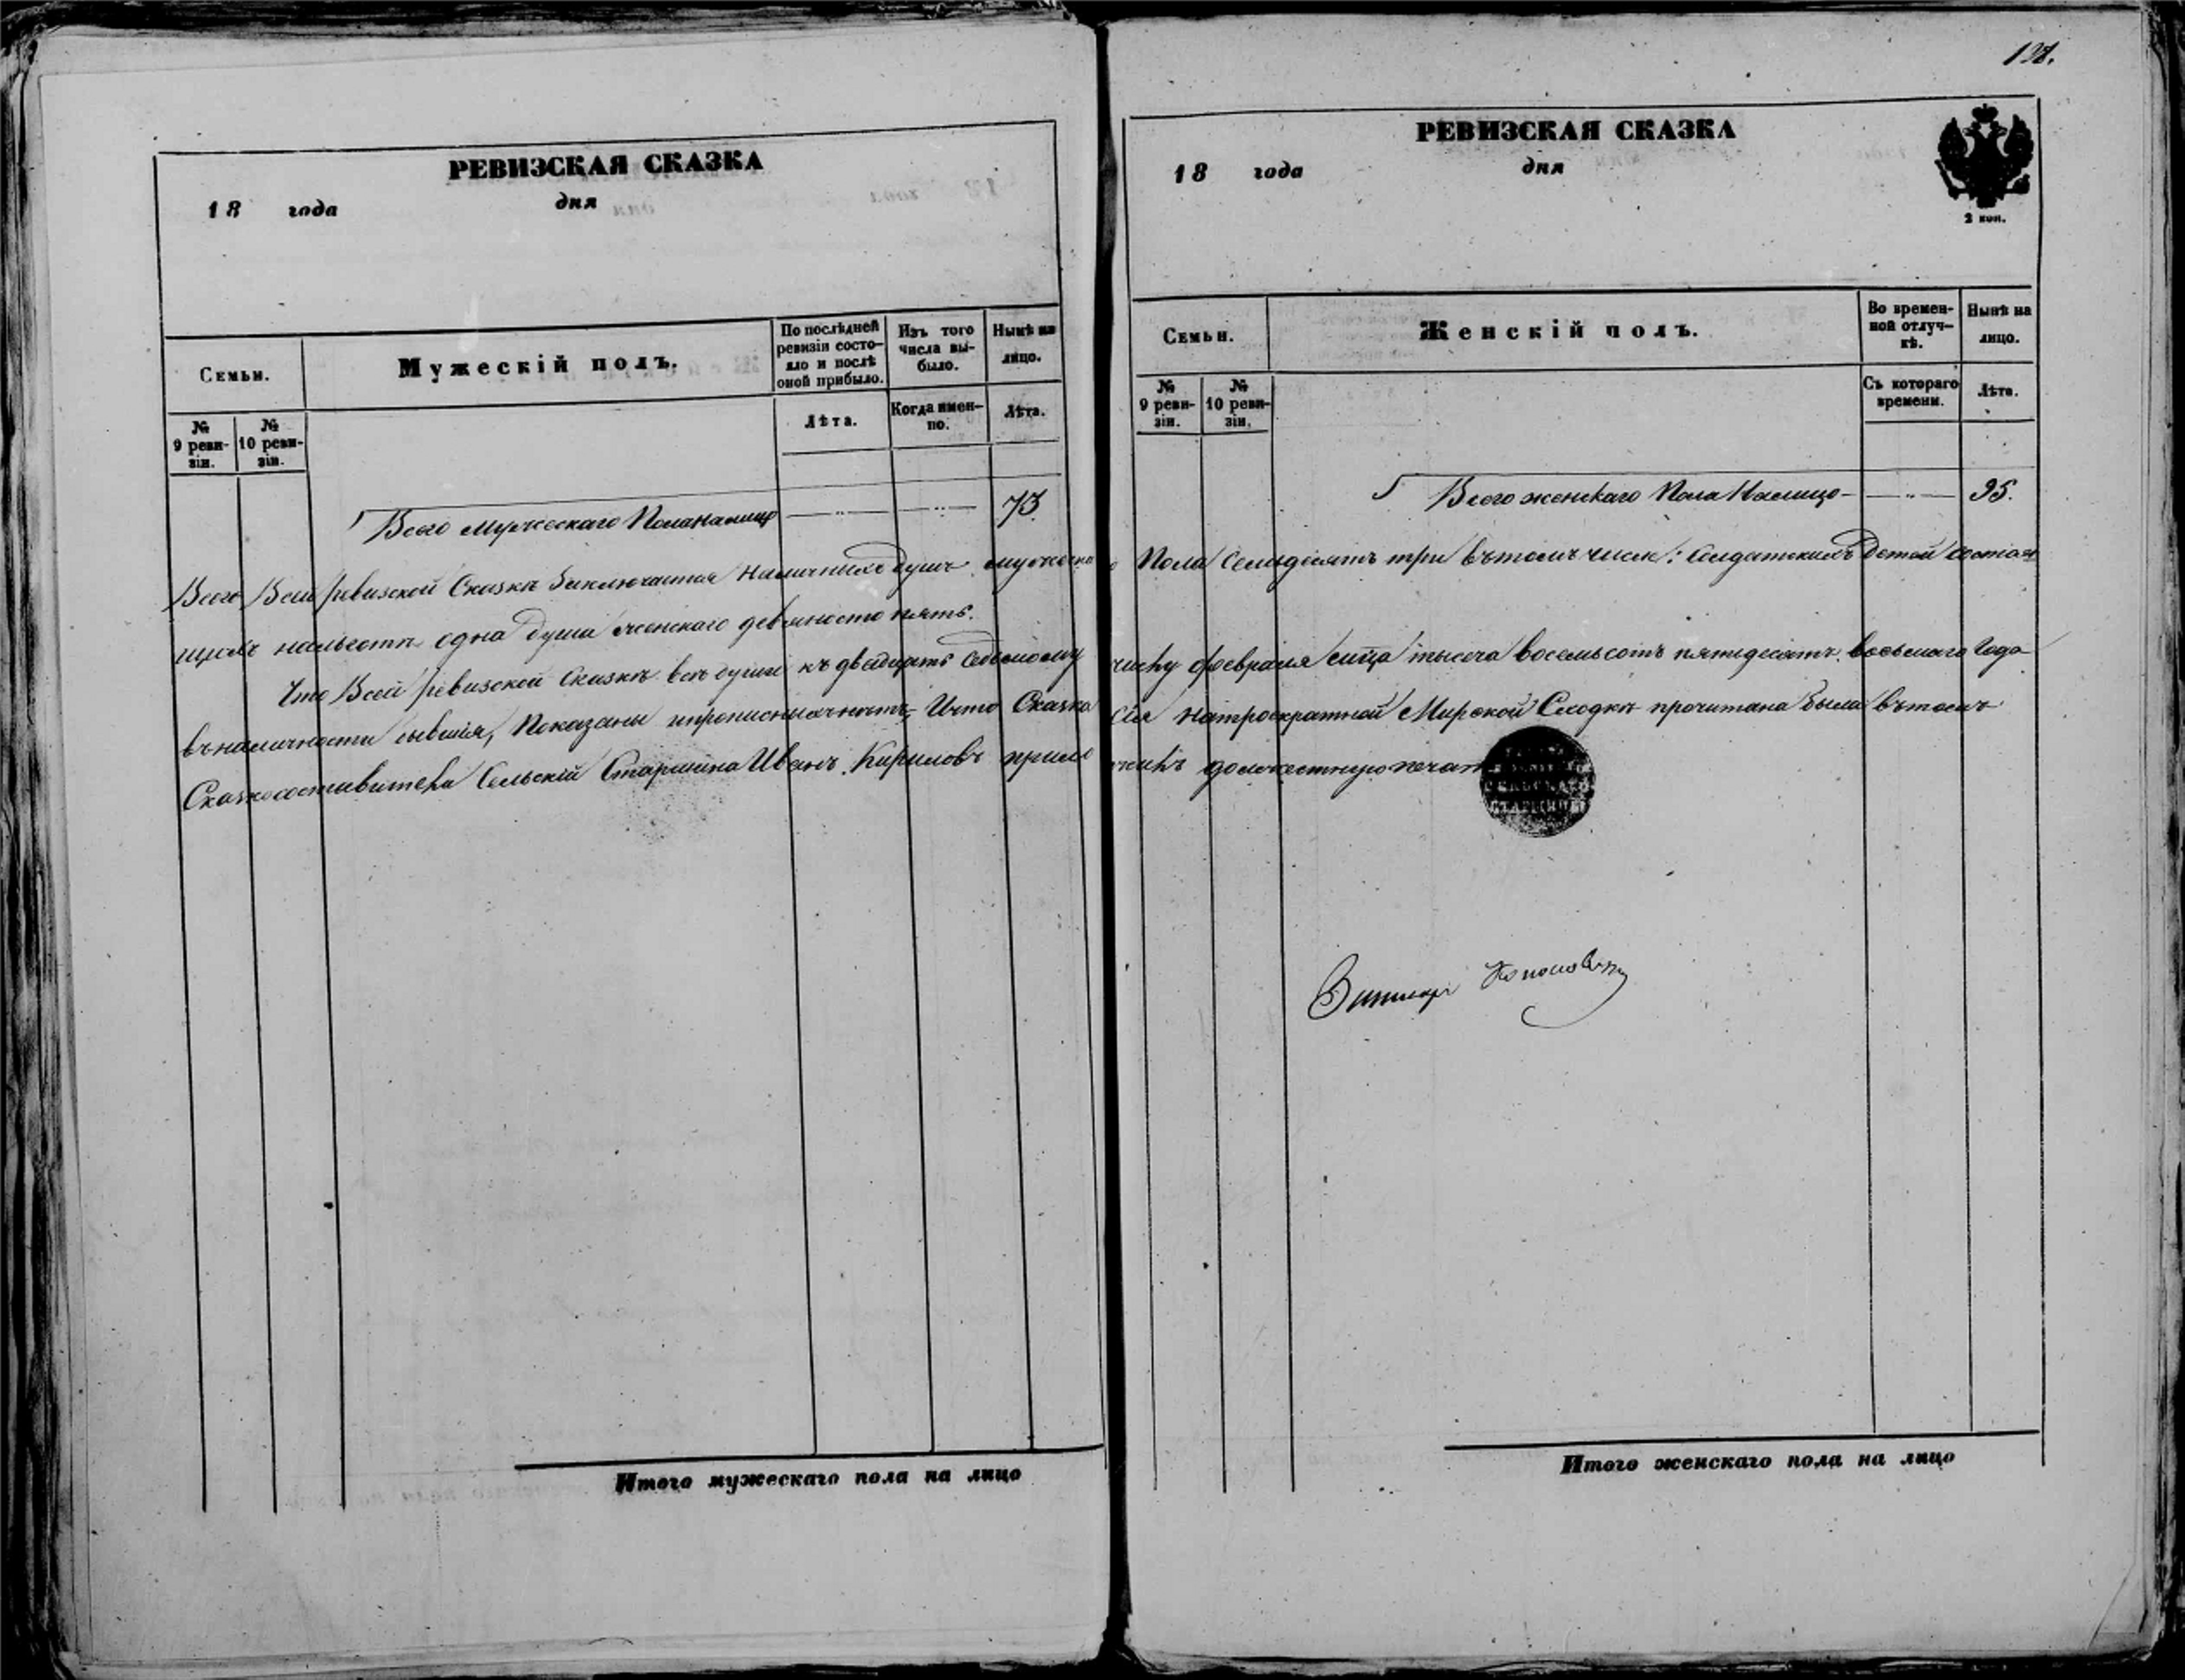 РЕВИЗСКАЯ СКАЗКА
18 года дня
Семьи.
Мужескій полъ.
По послѣдней ревизіи состояло и послѣ оной прибыло.
Изъ того числа выбыло.
Нынѣ на лицо.
№ 9 ревизіи.
№ 10 ревизіи.
Лѣта.
Когда именно.
Лѣта.
Всего мужескаго Пола налицо 73.
РЕВИЗСКАЯ СКАЗКА
18 года дня
2 коп.
Семьи.
Женскій полъ.
Во временной отлучкѣ.
Нынѣ на лицо.
№ 9 ревизіи.
№ 10 ревизіи.
Съ котораго времени.
Лѣта.
Всего женскаго Пола Налицо 95.
Всего Всей ревизской Сказкѣ Заключается Наличныхъ душъ мужеска Пола Семьдесятъ три вътомъ числѣ: Солдатскихъ Детей состоя
щихъ нальготѣ одна душа женскаго девяносто пять.
Что Всей ревизской Сказкѣ всѣ души къ двадцать Седьмому числу февраля тысяча восемьсотъ пятидесятъ восьмаго Года
въналичности бывшія, Показаны Ичто Сказка Сія натроекратной Мирской Сходкѣ прочитана была вътомъ
Сельскій Старшина Иванъ Кириловъ должностную печать
СЕЛЬСКАГО
СТАРШИНЫ
Итого мужескаго пола на лицо
Итого женскаго пола на лицо